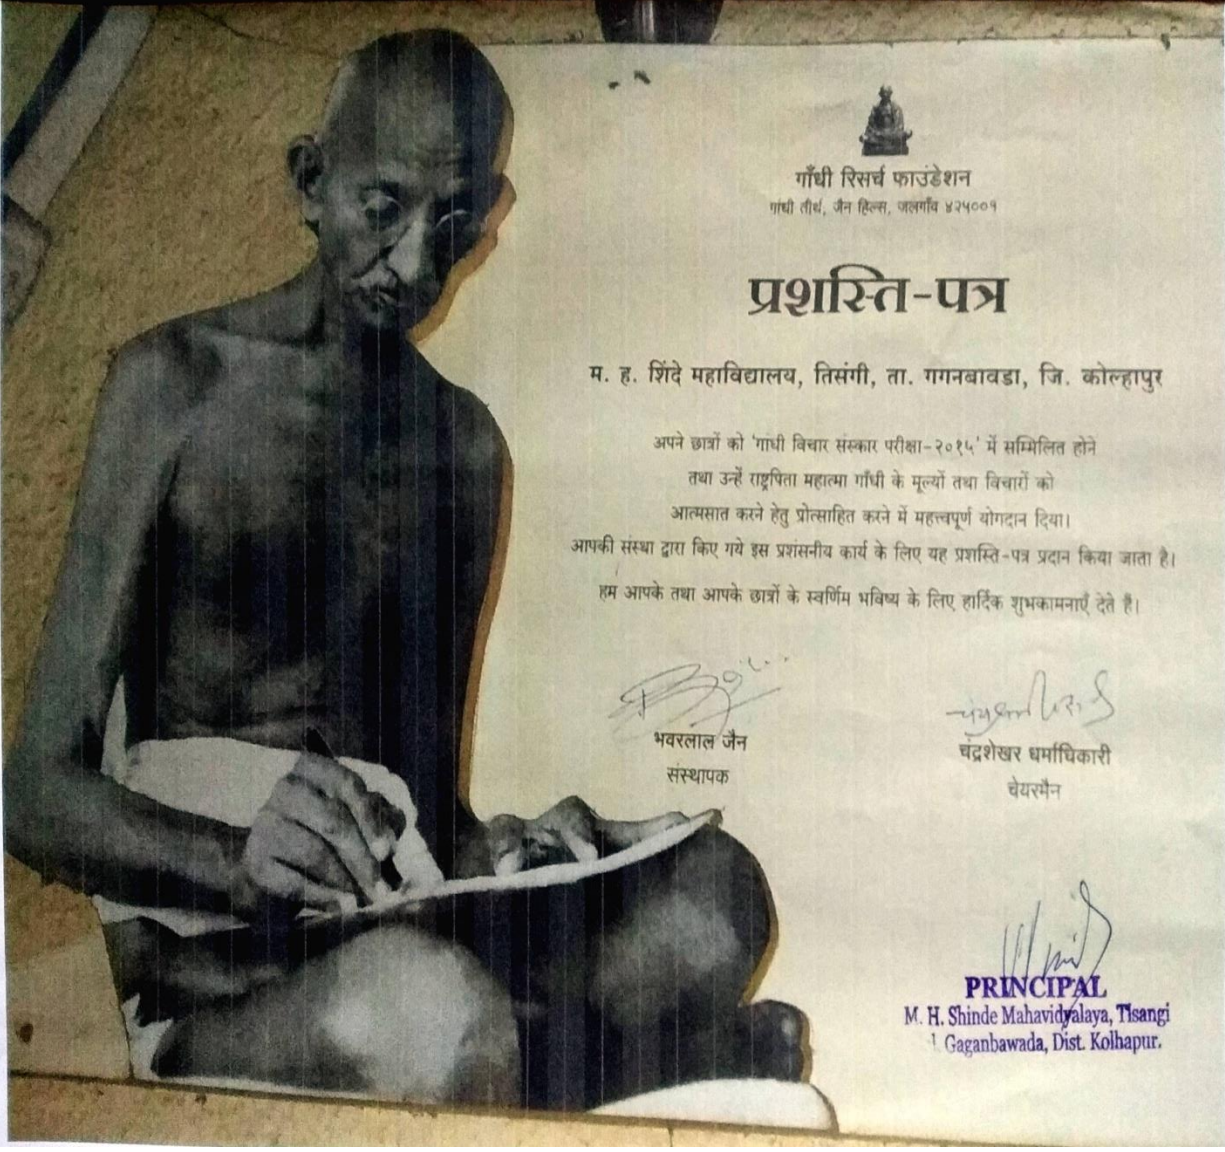 गाँधी रिसर्च फाउंडेशन
गांधी तीर्थ, जैन हिल्स, जलगाँव ४२५००१
प्रशस्ति-पत्र
म. ह. शिंदे महाविद्यालय, तिसंगी, ता. गगनबावडा, जि. कोल्हापुर
अपने छात्रों को 'गांधी विचार संस्कार परीक्षा-२०१५' में सम्मिलित होने
तथा उन्हें राष्ट्रपिता महात्मा गाँधी के मूल्यों तथा विचारों को
आत्मसात करने हेतु प्रोत्साहित करने में महत्त्वपूर्ण योगदान दिया।
आपकी संस्था द्वारा किए गये इस प्रशंसनीय कार्य के लिए यह प्रशस्ति-पत्र प्रदान किया जाता है।
हम आपके तथा आपके छात्रों के स्वर्णिम भविष्य के लिए हार्दिक शुभकामनाएँ देते है।
भवरलाल जैन
संस्थापक
चंद्रशेखर धर्माधिकारी
चेयरमैन
PRINCIPAL
M. H. Shinde Mahavidyalaya, Tisangi
Gaganbawada, Dist. Kolhapur.